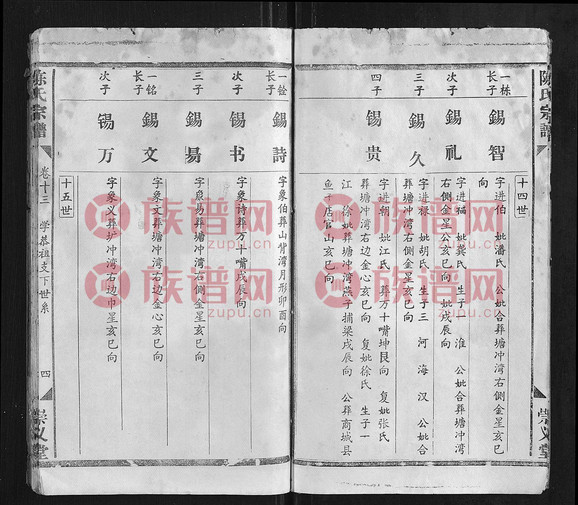 陳氏宗譜
崇义堂
十四世
一栋
长子
錫智
字进伯 妣潘氏 公妣合葬塘冲湾右側金星亥巳
向
次子
錫礼
字进福 妣龚氏 生子一 淮 公妣合葬塘冲湾
右側金星公亥巳向 妣戌辰向
三子
錫久
字进禄 妣胡氏 生子三 河 海 汉 公妣合
葬塘冲湾右側金星亥巳向
四子
錫贵
字进朝 妣江氏 葬万十嘴坤艮向 复妣张氏
葬塘冲湾右边金心亥巳向 复妣徐氏 生子一
江 徐妣葬塘冲湾燕子捕梁戌辰向 公葬商城县
店官山亥巳向
一銓
长子
錫詩
字象伯葬山背湾月形卯酉向
次子
锡书
字象詩葬万十嘴戌辰向
三子
錫易
字象易葬塘冲湾右側金星亥巳向
一銘
长子
錫文
字象文葬塘冲湾右边金心亥巳向
次子
锡万
字象义葬塘冲湾右边巾星亥巳向
十五世
陈氏宗譜
卷十三
学恭祖支下世系
四
崇义堂
族谱网
zupu.cn
族谱网
zupu.cn
族谱网
zupu.cn
族谱网
zupu.cn
族谱网
zupu.cn
族谱网
zupu.cn